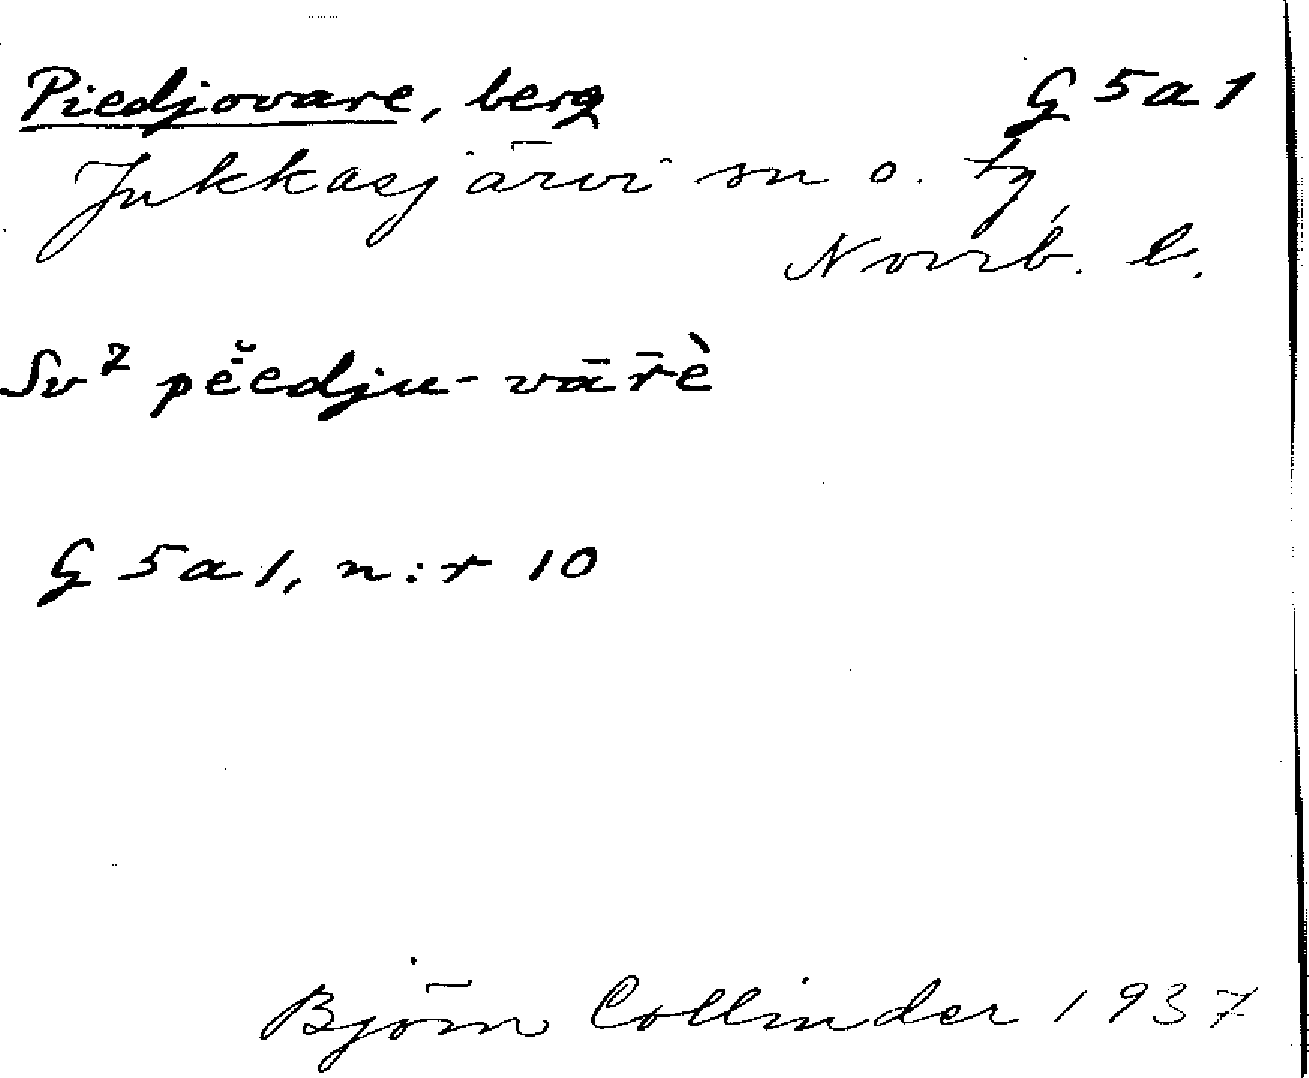 Piedjovare, berg G 5a1
Jukkasjärvi sn o. tg,
Norrb. l.
Sv² pĕ̄edju-vārè
G 5a1, n:r 10
Björn Collinder 1937